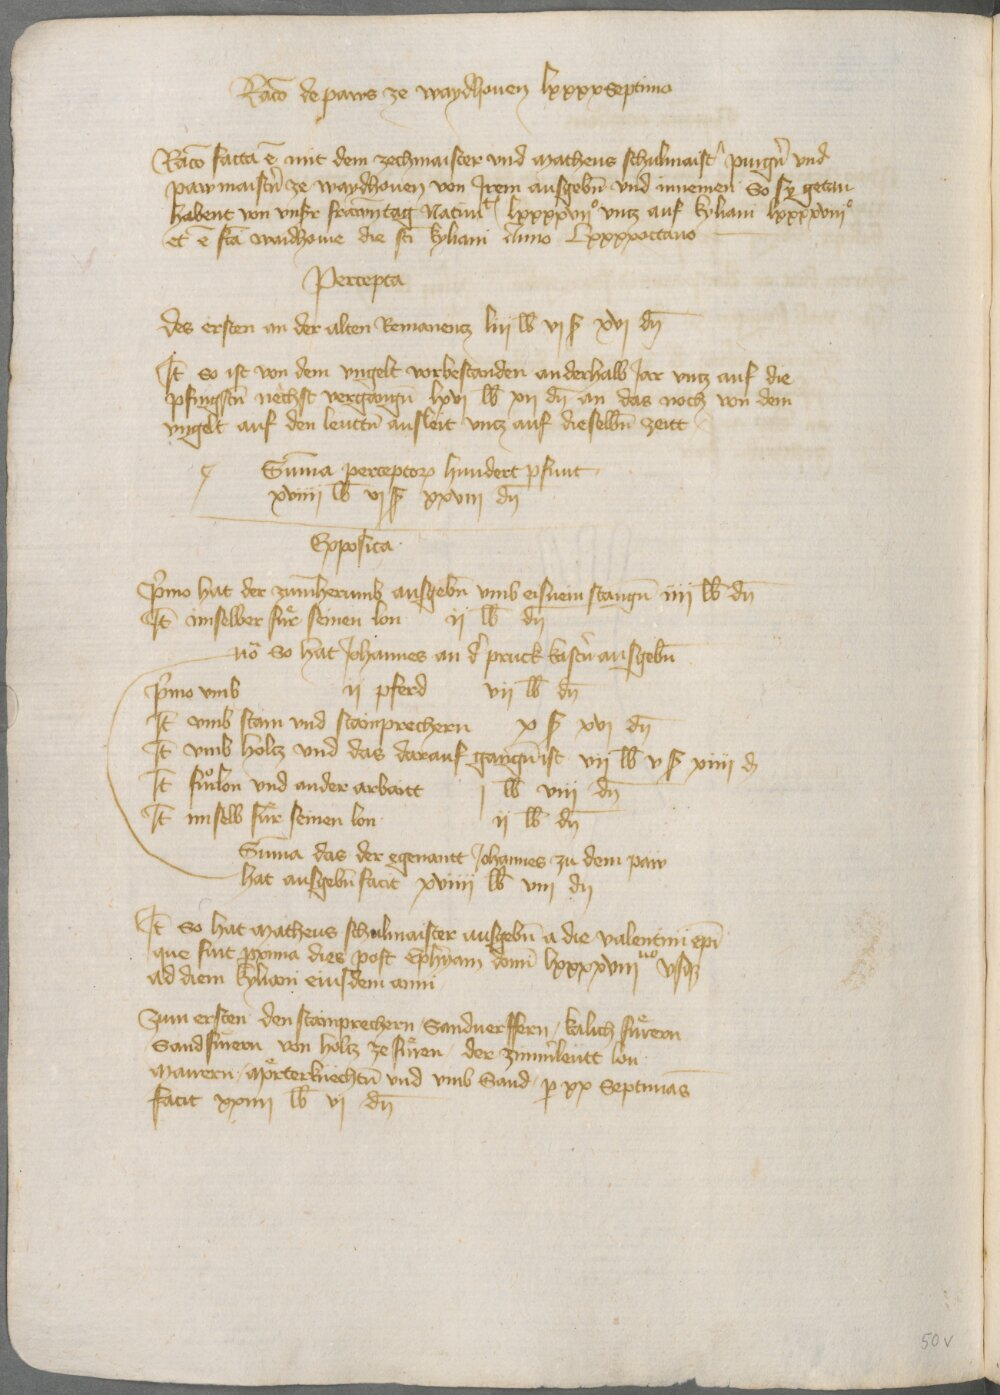 Racō de paws ze waydhouen lxxxvseptimo
Racō facta ē mit dem zechmaister vnd Matheus schulmaistʼ purgʼn vnd
pawmaistʼn ze waydhouen von Irem ausgebn̄ vnd innemen So sy getan
habent von vnsʼr frawntag Natiui lxxxxvii° vntz auf kyliani lxxxxviii°
et ē fcā waidhoue die sci kyliani Anno Lxxxxoctauo
Percepta
Des ersten an der alten Remanentz liii lb vi ß xvi dn̄
Itē so ist von dem vngelt vorbestanden anderhalb Jar vntz auf die
pfingstn̄ nechst vergangn̄ lxvi lb xii dn̄ an das noch von dem
vngelt auf den leuttn̄ ausleit vntz auf dieselbn̄ zeitt
Sum̄a perceptorꝝ hundert pfunt
xviiii lb vi ß xxviii dn̄
Exposita
Pʼmo hat der ausgebn̄ vmb eisnein stangn̄ iiii lb dn̄
Itē imselber fur seinen lon ii lb dn̄
No so hat Johannes an dʼ pruck kastn̄ ausgebn̄
Pʼmo vmb ii pferd vii lb dn̄
Itē vmb stain vnd stainprechern x ß xvi dn̄
Itē vmb holtz vnd das darauf gangn̄ ist vii lb v ß xiiii d
Itē furlon vnd ander arbaitt i lb viii dn̄
Itē imselb fur seinen lon ii lb dn̄
Sum̄a das der egenantt Johannes zu dem paw
hat ausgebn̄ facit xviiii lb viii dn̄
Itē so hat Matheus schulmaister ausgebn̄ a die valentini ep̄i
que fuit p̄xima dies post Ephyam dom̄ lxxxxviiiuo vsqꝫ
ad diem kyliani eiusdem anni
Zum ersten den stainprechern / Sanduerffern / kalich furern
Sandfurern von holtz ze furen / der zimʼleutt lon
Maurern / Mörterknechtn̄ vnd vmb Sand / ꝑ xx Septimās
facit xxiiii lb vi dn̄
50v